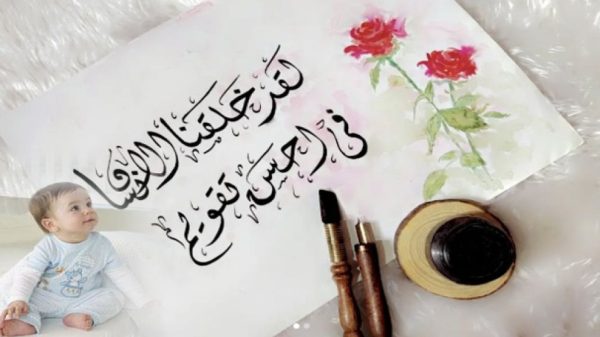 لقد خلقنا الانسان
في احسن تقويم